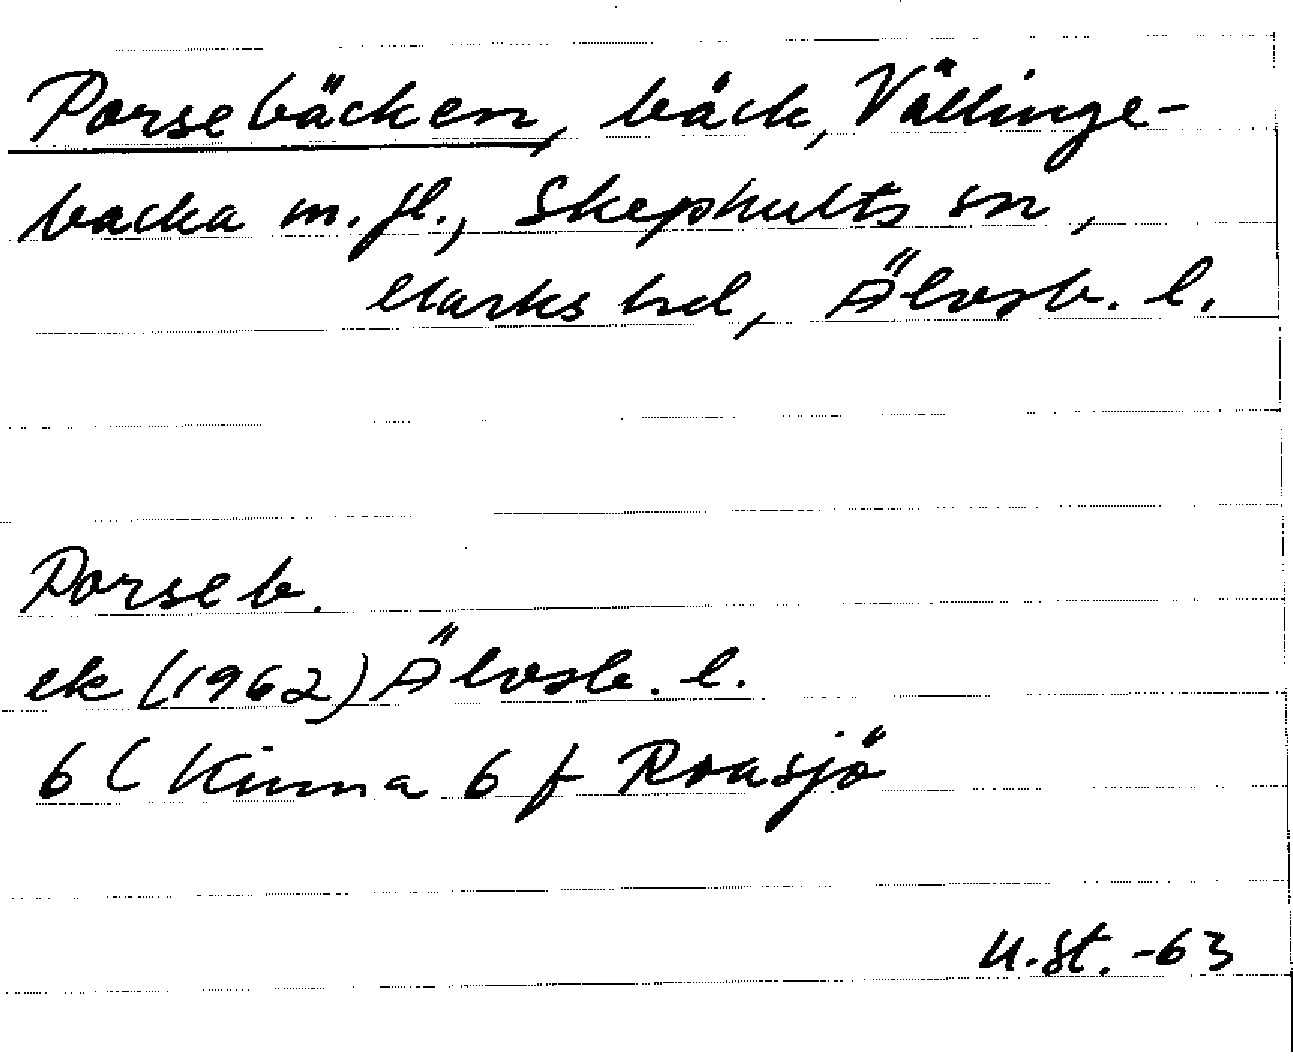 Porsebäcken, bäck, Vällinge-
backa m. fl., Skephults sn,
Marks hd, Älvsb. l.
Porseb.
ek (1962) Älvsb. l.
6 C Kinna 6 f Roasjö
U.St. -63